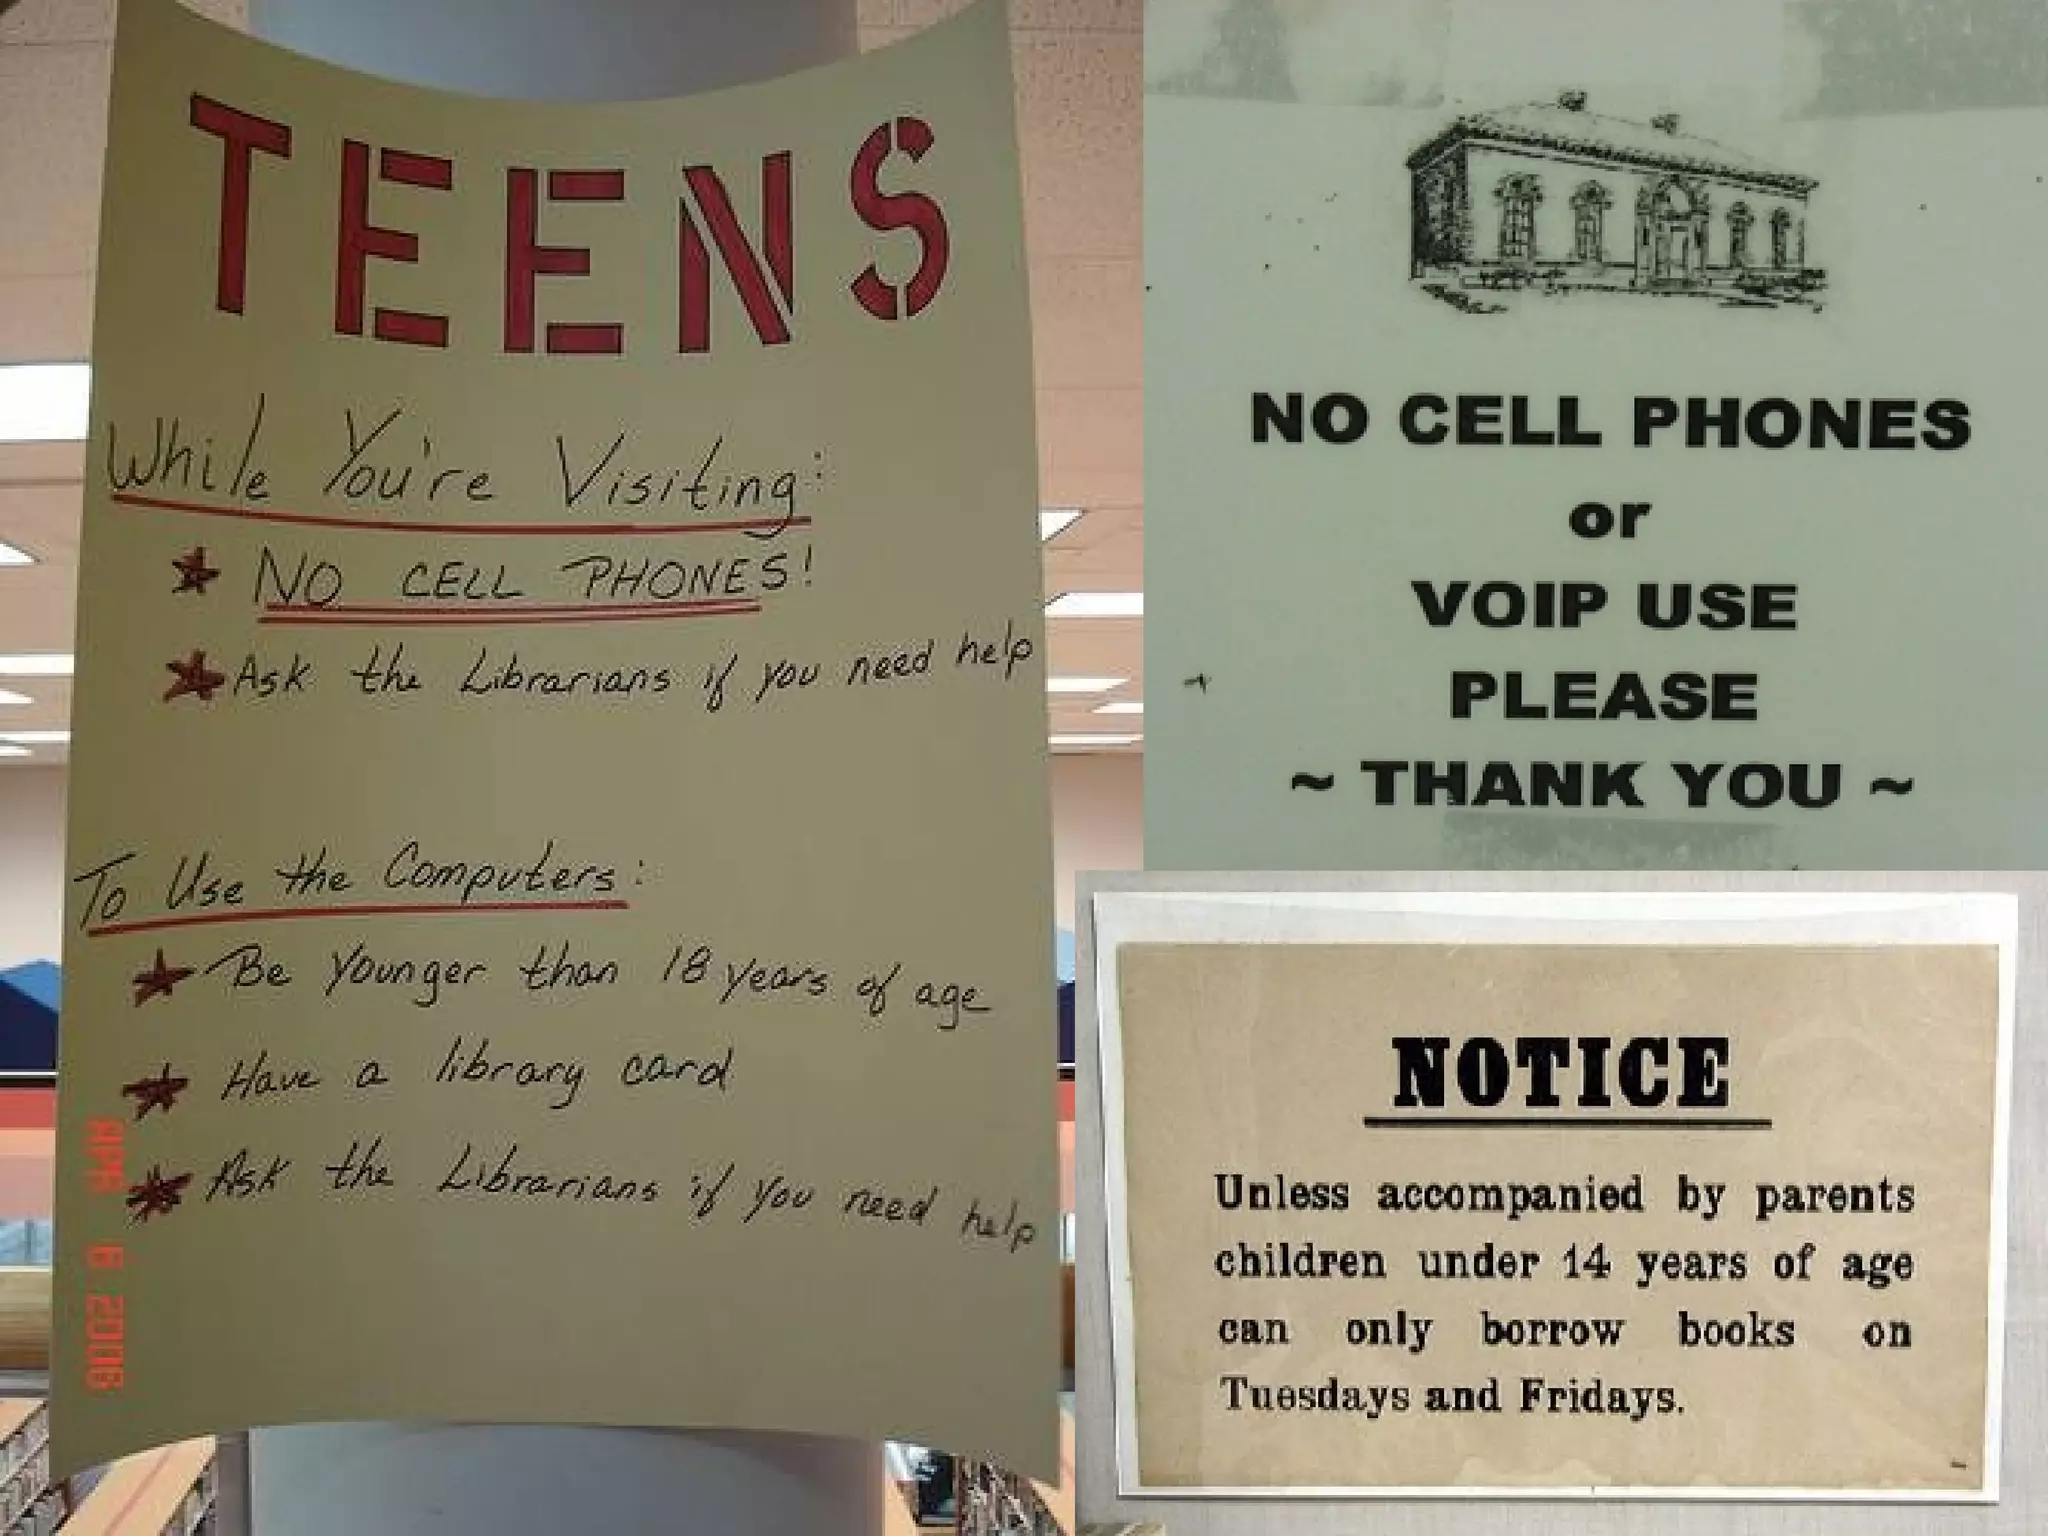 TEENS
While You're Visiting:
NO CELL PHONES!
Ask the Librarians if you need help
To Use the Computers:
Be Younger than 18 years of age
Have a library card
Ask the Librarians if you need help
APR 6 2008
NO CELL PHONES
or
VOIP USE
PLEASE
~ THANK YOU ~
NOTICE
Unless accompanied by parents
children under 14 years of age
can only borrow books on
Tuesdays and Fridays.